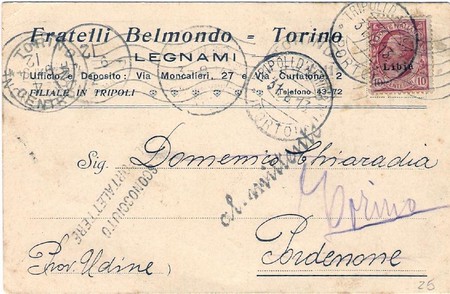 Fratelli Belmondo - Torino
LEGNAMI
Ufficio e Deposito: Via Moncalieri, 27 e Via Curtatone, 2
FILIALE IN TRIPOLI
Telefono 43-72
TORINO
12
CENTR
TRIPOLI
TRIPOLI
Libia
10
Sig. Domenico Chiaradia
SCONOSCIUTO
PORTALETTERE
al mittente
Torino
Pordenone
Prov. Udine
25